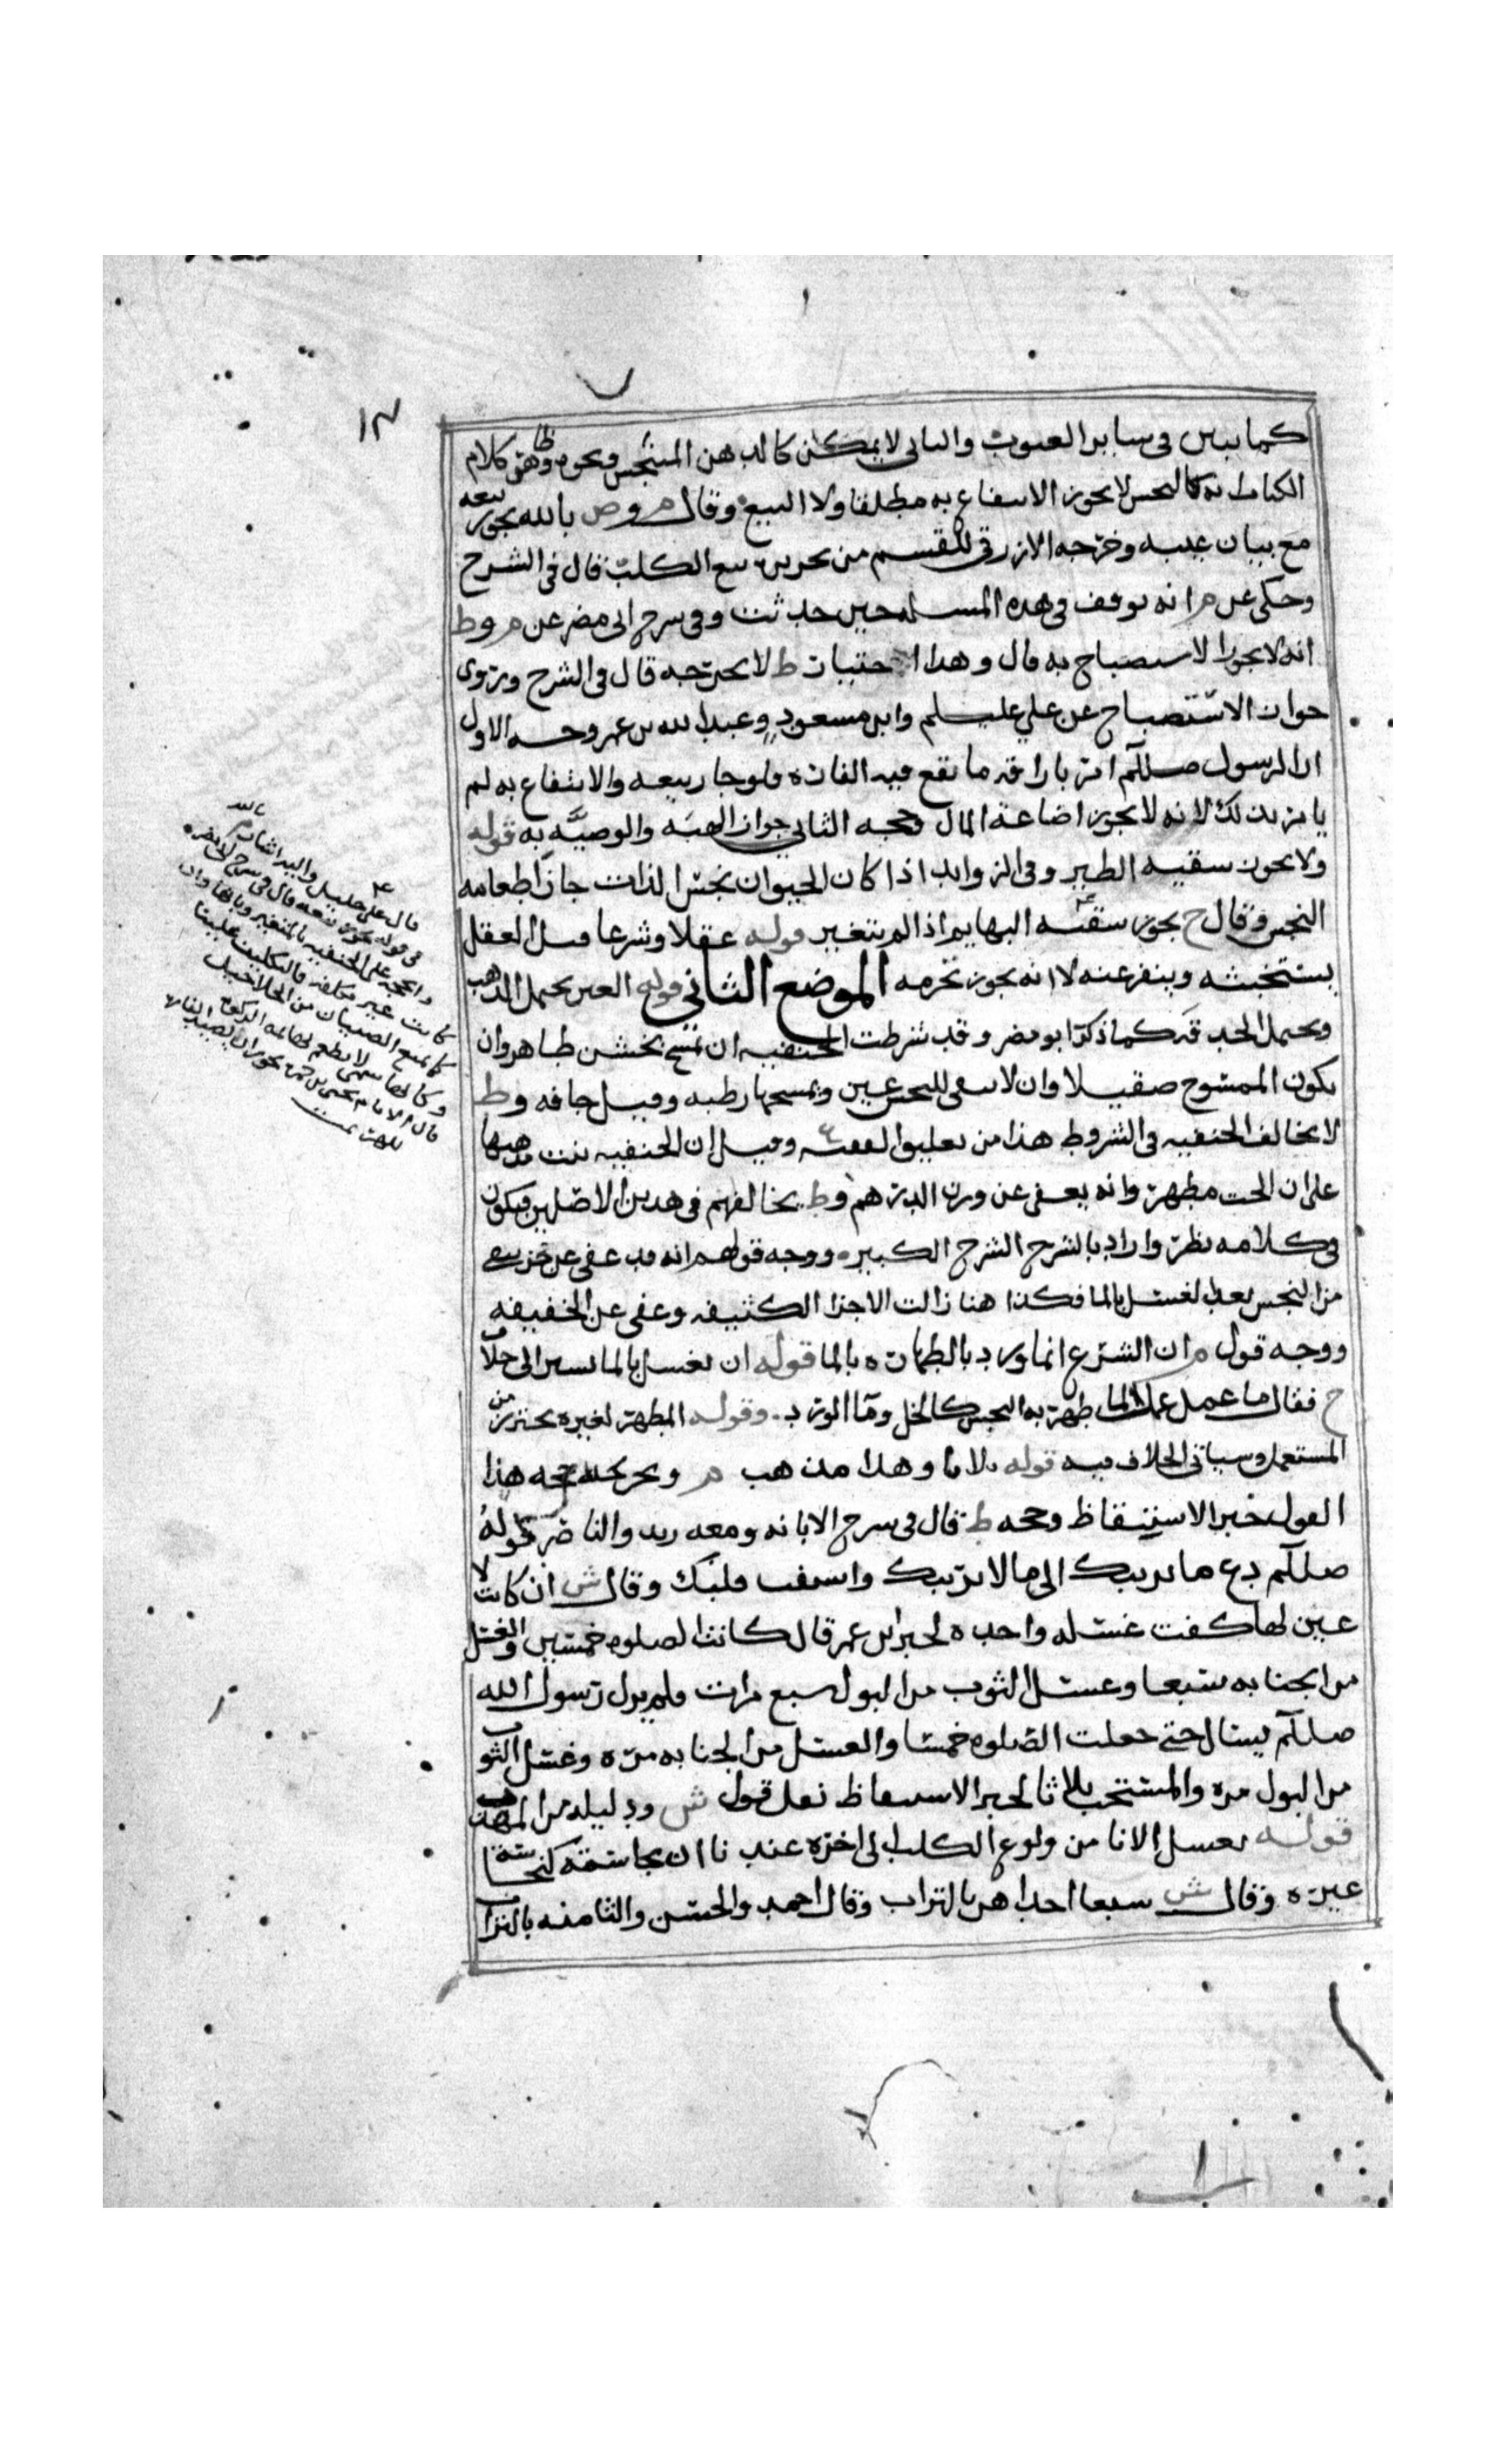 ١٣
كما يبين في سائر العيوب والثاني لا يمكن كالدهن المتنجس ونحوه وظاهر كلام
الكتاب انه كالنجس لا يجوز الانتفاع به مطلقا ولا البيع وقال م وص بالله يجوز بيعه
مع بيان عيبه وخرجه الازرقي للقسم من تجويزه بيع الكلب قال في الشرح
وحكى عن م انه توقف في هذه المسله حين حدثت وفي شرح ابي مضر عن م وط
انه لا يجوز الاستصباح به قال وهذا احتياط ط لا يحرجه قال في الشرح وروى
جواز الاستصباح عن علي عليلم وابن مسعود وعبدالله بن عمر وجه الاول
ان الرسول صللم امر باراقة ما تقع فيه الفاره ولو جاز بيعه والانتفاع به لم
يامر بذلك لانه لا يجوز اضاعة المال وحجه الثاني جواز الهبه والوصيه به قوله
ولا يجوز سقيه الطير وفي الزوائد اذا كان الحيوان نجس الذات جاز اطعامه
النجس وقال ح يجوز سقيه البهايم اذا لم يتغير قوله عقلا وشرعا قيل العقل
يستخبثه وينفر عنه لا انه يجوز تحرمه الموضع الثاني قوله العين يحتمل الذهب
ويحتمل الحدقه كما ذكر ابو مضر وقد شرطت الحنفيه ان تمسح بخشن طاهر وان
يكون الممسوح صقيلا وان لا يبقى للنجس عين ويمسحها رطبه وقيل جافه وط
لا يخالف الحنفيه في الشروط هذا من تعليق الفقيه ع وقيل ان الحنفيه بنت مذهبها
على ان الحت مطهر وانه يعفى عن وزن الدرهم وط يخالفهم في هذين الاصلين فيكون
في كلامه نظر واراد بالشرح الشرح الكبير ووجه قولهم انه قد عفي عن جزء يبقى
من النجس بعد الغسل بالما فكذا هنا زالت الاجزا الكثيفه وعفي عن الخفيفه
ووجه قول م ان الشرع انما ورد بالطهاره بالما قوله ان يغسل بالما يشير الى خلاف
ح فقال ما عمل عمل الما طهر به النجس كالخل وما الورد وقوله المطهر لغيره يحترز من
المستعمل وسياتي الخلاف فيه قوله ثلاثا وهذا مذهب م وتخريجه حجه هذا
القول خبر الاستيقاظ وحجه ط قال في شرح الابانه ومعه زيد والناصر قوله
صللم دع ما يريبك الى ما لا يريبك واستفت قلبك وقال ش ان كانت لا
عين لها كفت غسله واحده لخبر ابن عمر قال كانت الصلوه خمسين والغسل
من الجنابه سبعا وغسل الثوب من البول سبع مرات فلم يزل رسول الله
صللم يسال حتى جعلت الصلوه خمسا والغسل من الجنابه مره وغسل الثوب
من البول مره والمستحب ثلاثا لخبر الاستيقاظ نعل قول ش ودليله من المهذب
قوله يغسل الانا من ولوغ الكلب الى اخره عندنا ان نجاسته كنجاسة
غيره وقال ش سبعا احداهن بالتراب وقال احمد والحسن والثامنه بالتراب
قال علي خليل واليه اشار م بالله
في قوله يجوز بيعه قال في شرح ابي مضر
والحجه على الحنفيه بالمتغير وبانها وان
كانت غير مكلفه فالتكليف علينا
كما نمنع الصبيان من
قال الامام يحيى بن حمزه يجوز ان
للهر تمت